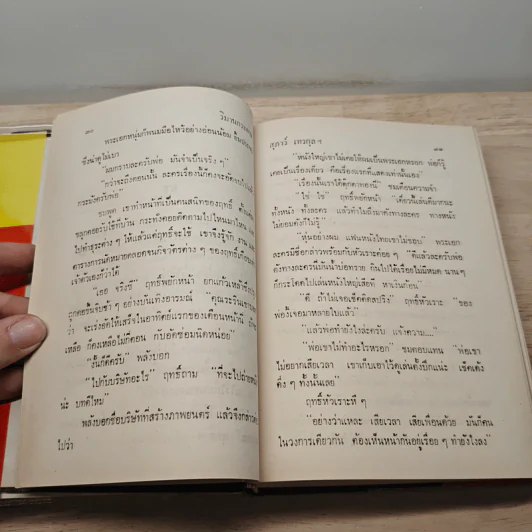 ๓๐
วิมานกลาง
พระเอกหนุ่มก็พนมมือไหว้อย่างอ่อนน้อม
ซึ่งน่าดูไม่เบา
"ผมกราบละครับพ่อ มันจำเป็นจริง ๆ"
"กว่าจะถึงตอนนั้น ละครเรื่องนี้ก็คงจะอัด
กระมังครับพ่อ"
ชมพูต เขาทำหน้าที่เป็นคนสนิทของฤทธิ์ ตั้งแต่
ปลุกคอยรับใช้ที่บ้าน กระทั่งคอยติดตามไปไหนมาไหน
ไปทำธุระต่าง ๆ ให้แล้วแต่ฤทธิ์จะใช้ เขาจึงรู้จัก
ตารางการนัดหมายตลอดจนกิจวัตรต่าง ๆ ของฤทธิ์
เจ้าตัวเองที่ว่าได้
"เออ จริงซี" ฤทธิ์พยักหน้า ยกแก้วเหล้าขึ้น
ถูกคอขึ้นจิบช้า ๆ อย่างบันเทิงอารมณ์ "คุณระรินเขา
ว่า จะเร่งอัดให้เสร็จในอาทิตย์แรกของเดือนหน้านี้
เหลือ ก็คงเหลือไม่กี่ตอน กับอัดซ่อมนิดหน่อย"
"งั้นก็ดีครับ" พลังบอก
"ไปกับบริษัทอะไร" ฤทธิ์ถาม "ที่จะไปถ่าย
น่ะ บทดีไหม"
พลังบอกชื่อบริษัทที่สร้างภาพยนตร์ แล้วจึงกล่าว
ไปว่า
สุภาว์ เทวกุลฯ
๓๑
"หนังใหญ่เขาไม่เคยให้ผมเป็นพระเอกหรอก พ่อก็รู้
เคยเป็นเรื่องเดียว คือเรื่องแรกที่แสดงเท่านั้นเอง"
"เรื่องนั้นเราได้ตุ๊กตาทองนี่" ชมเตือนความจำ
"ใช่ ใช่" ฤทธิ์พยักหน้า "เดี๋ยวนี้เล่นดีมากนะ
ทั้งหนัง ทั้งละคร แล้วทำไมถึงมาดังทางละคร ทางหนัง
ไม่ยอมดังก็ไม่รู้"
"หุ่นอย่างผม แฟนหนังไทยเขาไม่ชอบ" พระเอก
ละครมีชื่อกล่าวพร้อมกับหัวเราะค่อย ๆ "ดีแล้วละครับพ่อ
ดังทางละครนี่มันน้ำบ่อทราย กินไปได้เรื่อยไม่หมด นาน ๆ
ก็กระโดดไปเล่นหนังใหญ่เสียที หาเงินก้อน"
"ดี ถ้าไม่เจอเช็คติดสปริง" ฤทธิ์หัวเราะ "ของ
พ่องี้เจอมาหลายใบแล้ว"
"แล้วพ่อทำยังไงล่ะครับ แจ้งความ...."
"พ่อเขาไม่ทำอะไรหรอก" ชมตอบแทน "พ่อเขา
ไม่อยากเสียเวลา เขาเก็บเอาไว้ดูเล่นตั้งปึกแน่ะ เช็คเด้ง
ดึ๋ง ๆ ทั้งนั้นเลย"
ฤทธิ์หัวเราะหึ ๆ
"อย่างว่าแหละ เสียเวลา เสียเพื่อนด้วย มันก็คน
ในวงการเดียวกัน ต้องเห็นหน้ากันอยู่เรื่อย ๆ ทำยังไงลง"